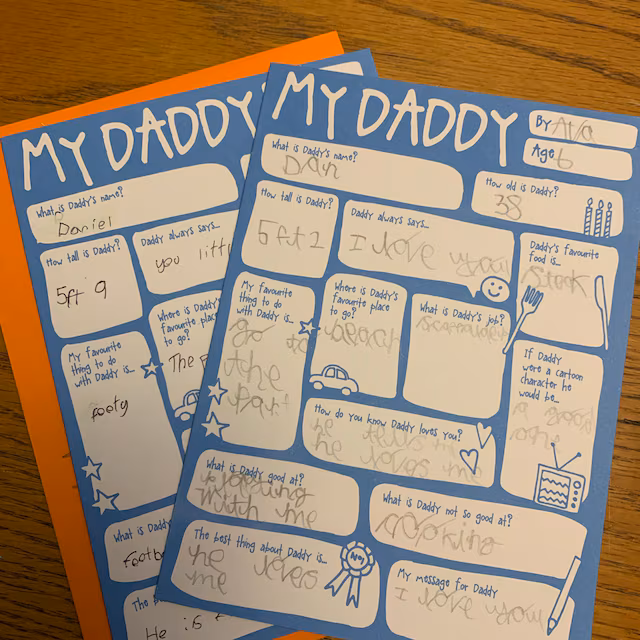 MY DADDY
What is Daddy's name?
Daniel
How tall is Daddy?
5ft 9
Daddy always says...
you litt
My favourite
thing to do
with Daddy is...
footy
Where is Daddy's
favourite place
to go?
The
What is Daddy
Footb
The b
He is
MY DADDY
By Ava
Age 6
What is Daddy's name?
Dan
How old is Daddy?
38
How tall is Daddy?
5ft 1
Daddy always says...
I love you
Daddy's favourite
food is...
My favourite
thing to do
with Daddy is...
go to
the
park
Where is Daddy's
favourite place
to go?
beach
What is Daddy's job?
If Daddy
were a cartoon
character he
would be...
a good
How do you know Daddy loves you?
he tells me
he loves me
What is Daddy good at?
with me
What is Daddy not so good at?
cooking
The best thing about Daddy is...
he loves
me
No1
My message for Daddy
I love you